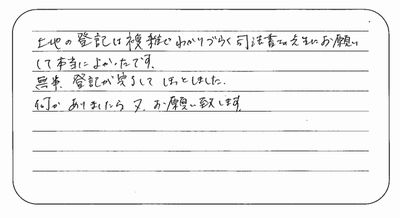 土地の登記は複雑でわかりづらく司法書士先生にお願い
して本当によかったです。
無事、登記が完了してほっとしました。
何かありましたら又、お願い致します。